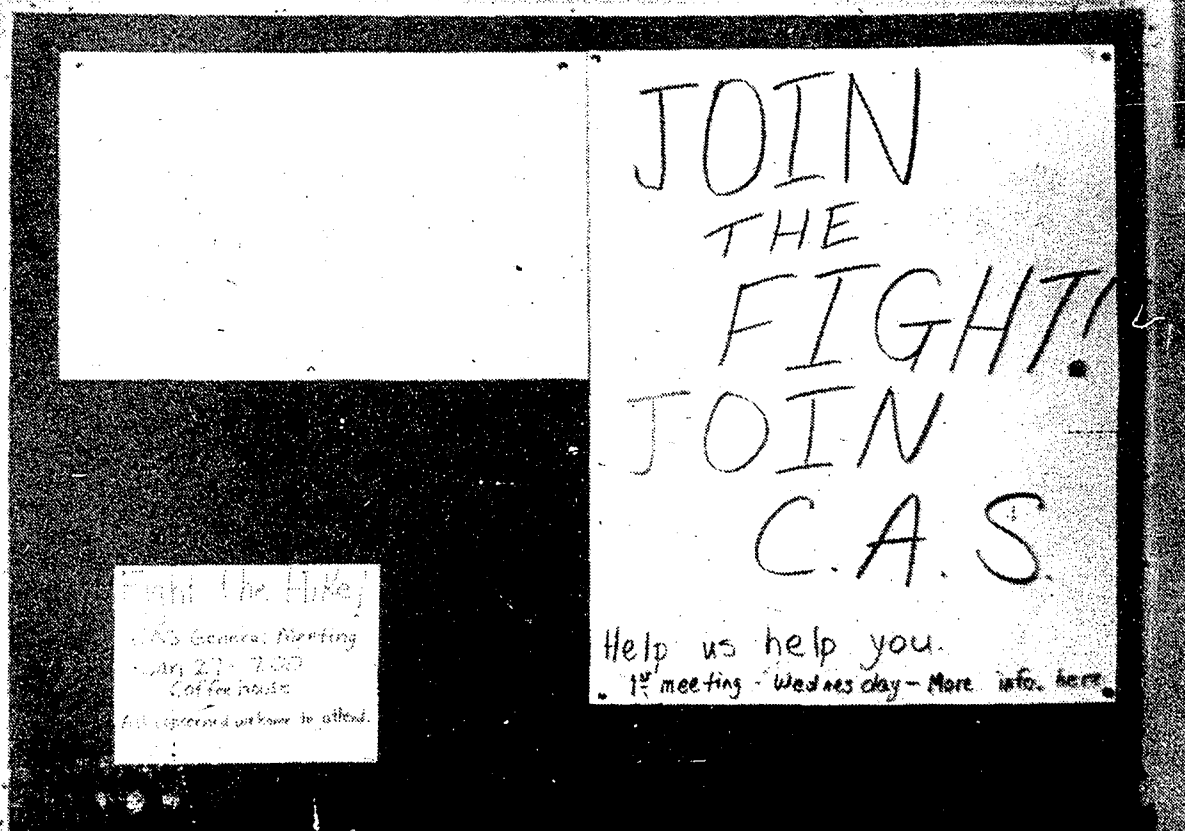 JOIN
THE
FIGHT!
JOIN
C.A.S.
Help us help you.
1st meeting - Wednesday - More info. here
Fight the Hike!
General Meeting
Coffee house
All concerned welcome to attend.